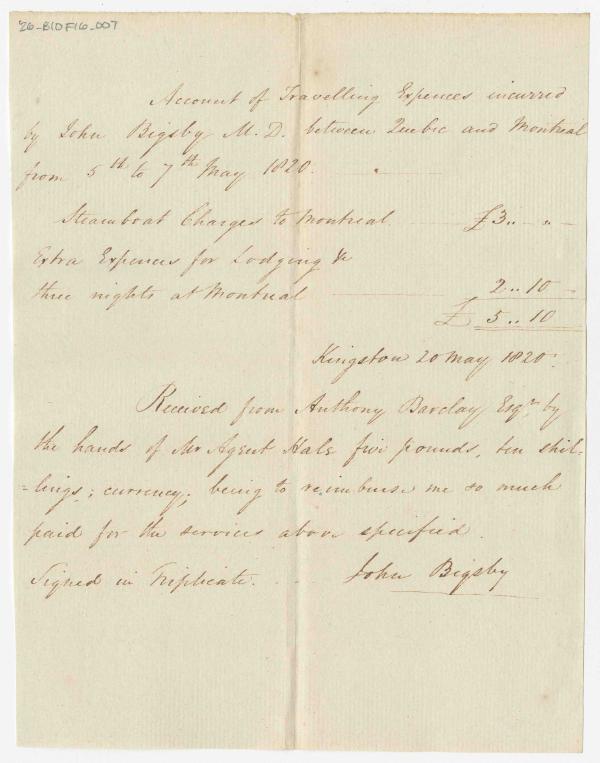 26-B10F16-007
Account of Travelling Expences incurred
by John Bigsby M. D. between Quebec and Montreal
from 5th to 7th May 1820.
Steamboat Charges to Montreal £3.. - " -
Extra Expences for Lodging &c
three nights at Montreal 2.. 10 -
£ 5.. 10
Kingston 20 May 1820.
Received from Anthony Barclay Esqr by
the hands of Mr Agent Hale five pounds, ten shil-
=lings; currency, being to reimburse me so much
paid for the services above specified.
Signed in Triplicate. John Bigsby